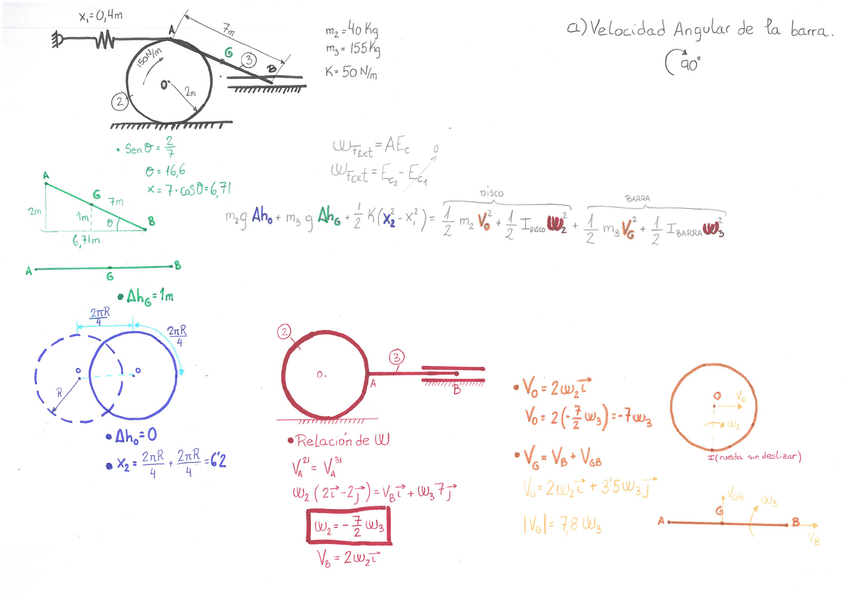 x₁=0,4m
A
7m
G
3
B
150 N/m
O
2m
2
m₂=40Kg
m₃=155Kg
K=50N/m
a) Velocidad Angular de la barra.
90°
• Sen θ = 2/7
θ = 16,6
x = 7·cosθ = 6,71
A
G
7m
2m
1m
θ
B
6,71m
A
G
B
• Δh_G = 1m
W_FExt = ΔEc
W_FExt = Ec₂ - Ec₁
0
DISCO
BARRA
m₂g Δh₀ + m₃g Δh_G + 1/2 K(x₂² - x₁²) = 1/2 m₂ V₀² + 1/2 I_DISCO ω₂² + 1/2 m₃ V_G² + 1/2 I_BARRA ω₃²
2πR/4
2πR/4
O
O
R
• Δh₀ = 0
• x₂ = 2πR/4 + 2πR/4 = 6'2
2
O
A
3
B
• Relación de ω
V_A²¹ = V_A³¹
ω₂(2i⃗ - 2j⃗) = V_B i⃗ + ω₃7j⃗
ω₂ = -7/2 ω₃
V_B = 2ω₂i⃗
• V₀ = 2ω₂i⃗
V₀ = 2(-7/2 ω₃) = -7ω₃
• V_G = V_B + V_GB
V_G = 2ω₂i⃗ + 3'5ω₃j⃗
|V_G| = 7,8ω₃
O
V₀
ω₂
I (rueda sin deslizar)
V_GB
ω₃
A
G
B
V_B